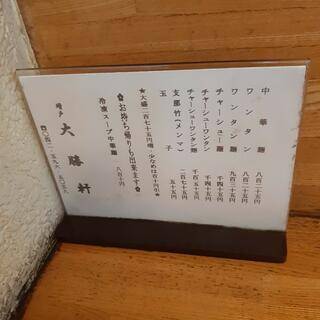 中華麺 八百二十五円
ワンタン 八百二十五円
ワンタン麺 九百三十五円
チャーシュー麺 千四十五円
チャーシューワンタン 千四十五円
チャーシューワンタン麺 千百五十五円
支那竹(メンマ) 二百七十五円
玉子 五十五円
★大盛 二百七十五円増 少なめは百十円引★
✿お持ち帰りも出来ます✿
冷凍スープ中華麺 八百十円
大勝軒